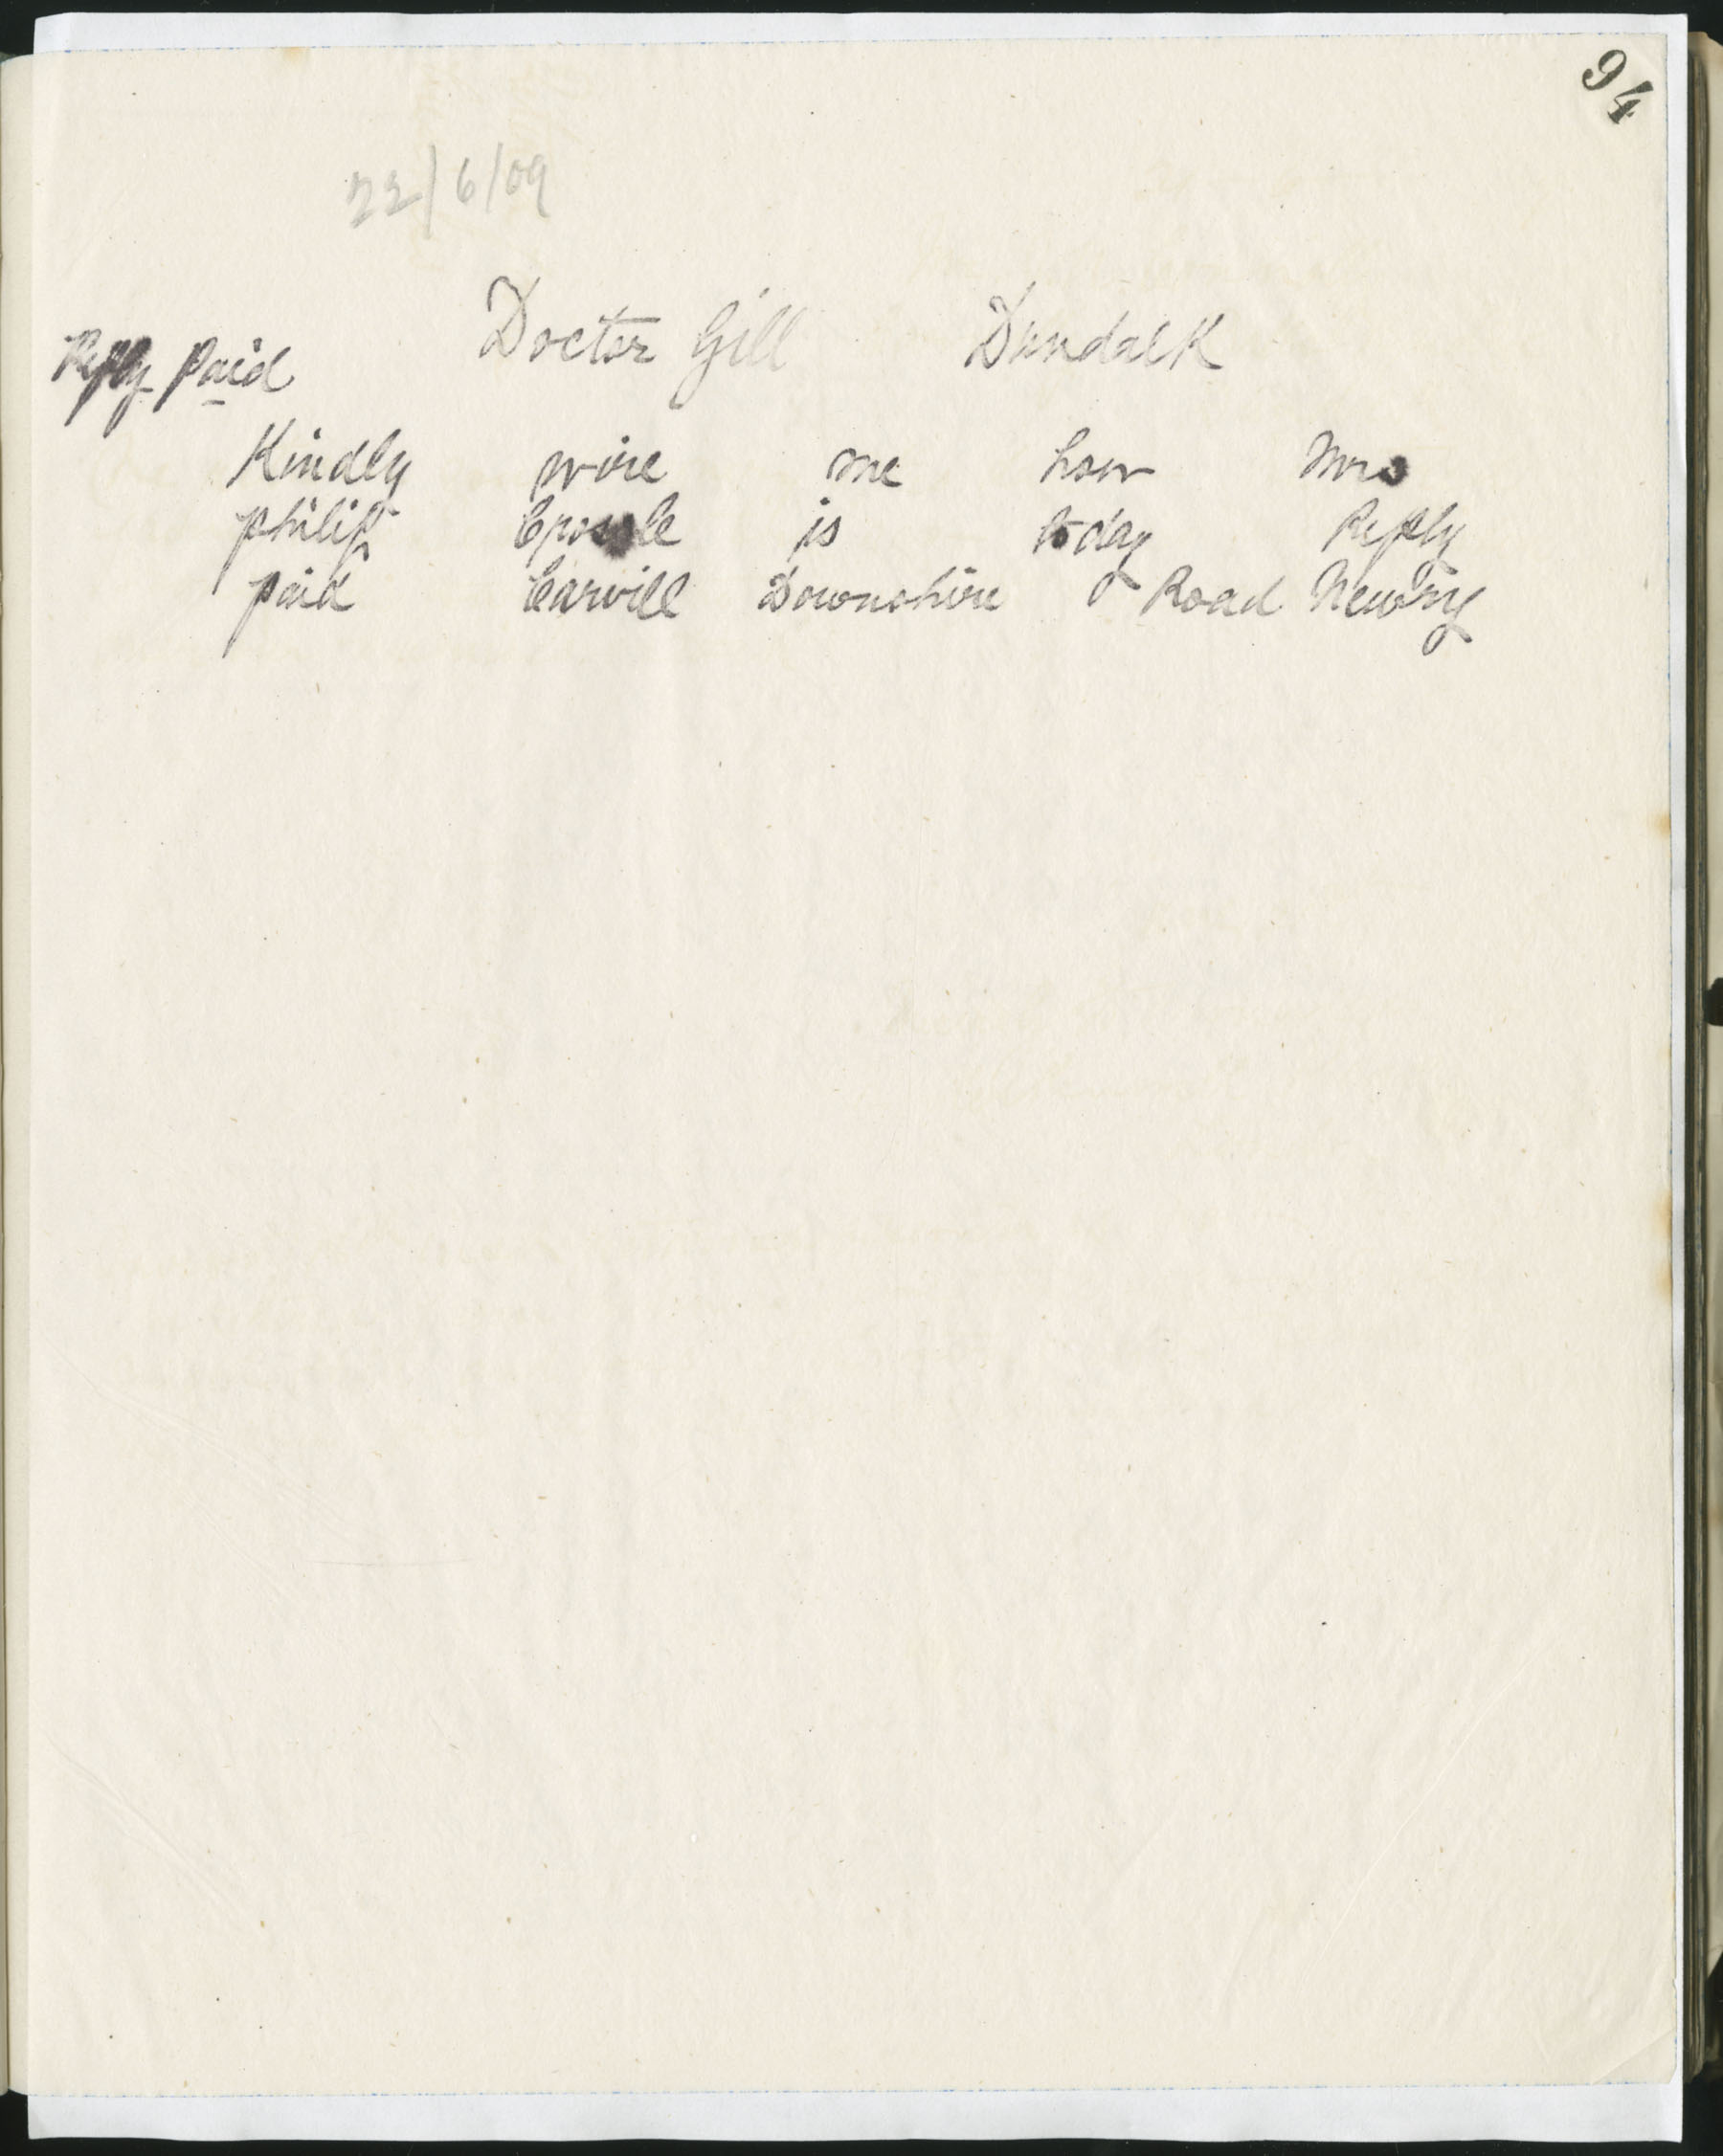 94
22/6/09
Doctor Gill Dundalk
Reply Paid
Kindly wire me how Mrs
philip is today Reply
paid Carvill Downshire Road Newry